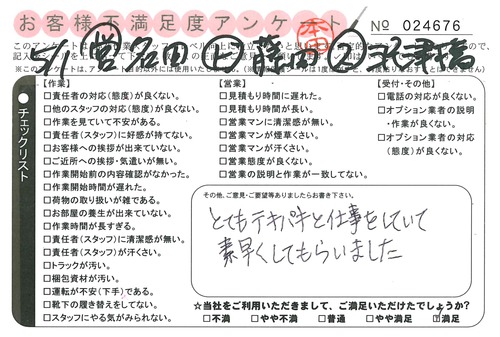 お客様不満足度アンケート
No 024676
【作業】
□責任者の対応(態度)が良くない。
□他のスタッフの対応(態度)が良くない。
□作業を見ていて不安がある。
□責任者(スタッフ)に好感が持てない。
□お客様への挨拶が出来ていない。
□ご近所への挨拶・気遣いが無い。
□作業開始前の内容確認がなかった。
□作業開始時間が遅れた。
□荷物の取り扱いが雑である。
□お部屋の養生が出来ていない。
□作業時間が長すぎる。
□責任者(スタッフ)に清潔感が無い。
□責任者(スタッフ)が汗くさい。
□トラックが汚い。
□梱包資材が汚い。
□運転が不安(下手)である。
□靴下の履き替えをしてない。
□スタッフにやる気がみられない。
【営業】
□見積もり時間に遅れた。
□見積もり時間が長い。
□営業マンに清潔感が無い。
□営業マンが煙草くさい。
□営業マンが汗くさい。
□営業態度が良くない。
□営業の説明と作業が一致してない。
【受付・その他】
□電話の対応が良くない。
□オプション業者の説明
・作業が良くない。
□オプション業者の対応
(態度)が良くない。
チェックリスト
その他、ご意見・ご要望等ありましたらお書き下さい。
とてもテキパキと仕事をしていて
素早くしてもらいました
☆当社をご利用いただきまして、ご満足いただけたでしょうか?
□不満 □やや不満 □普通 □やや満足 □満足